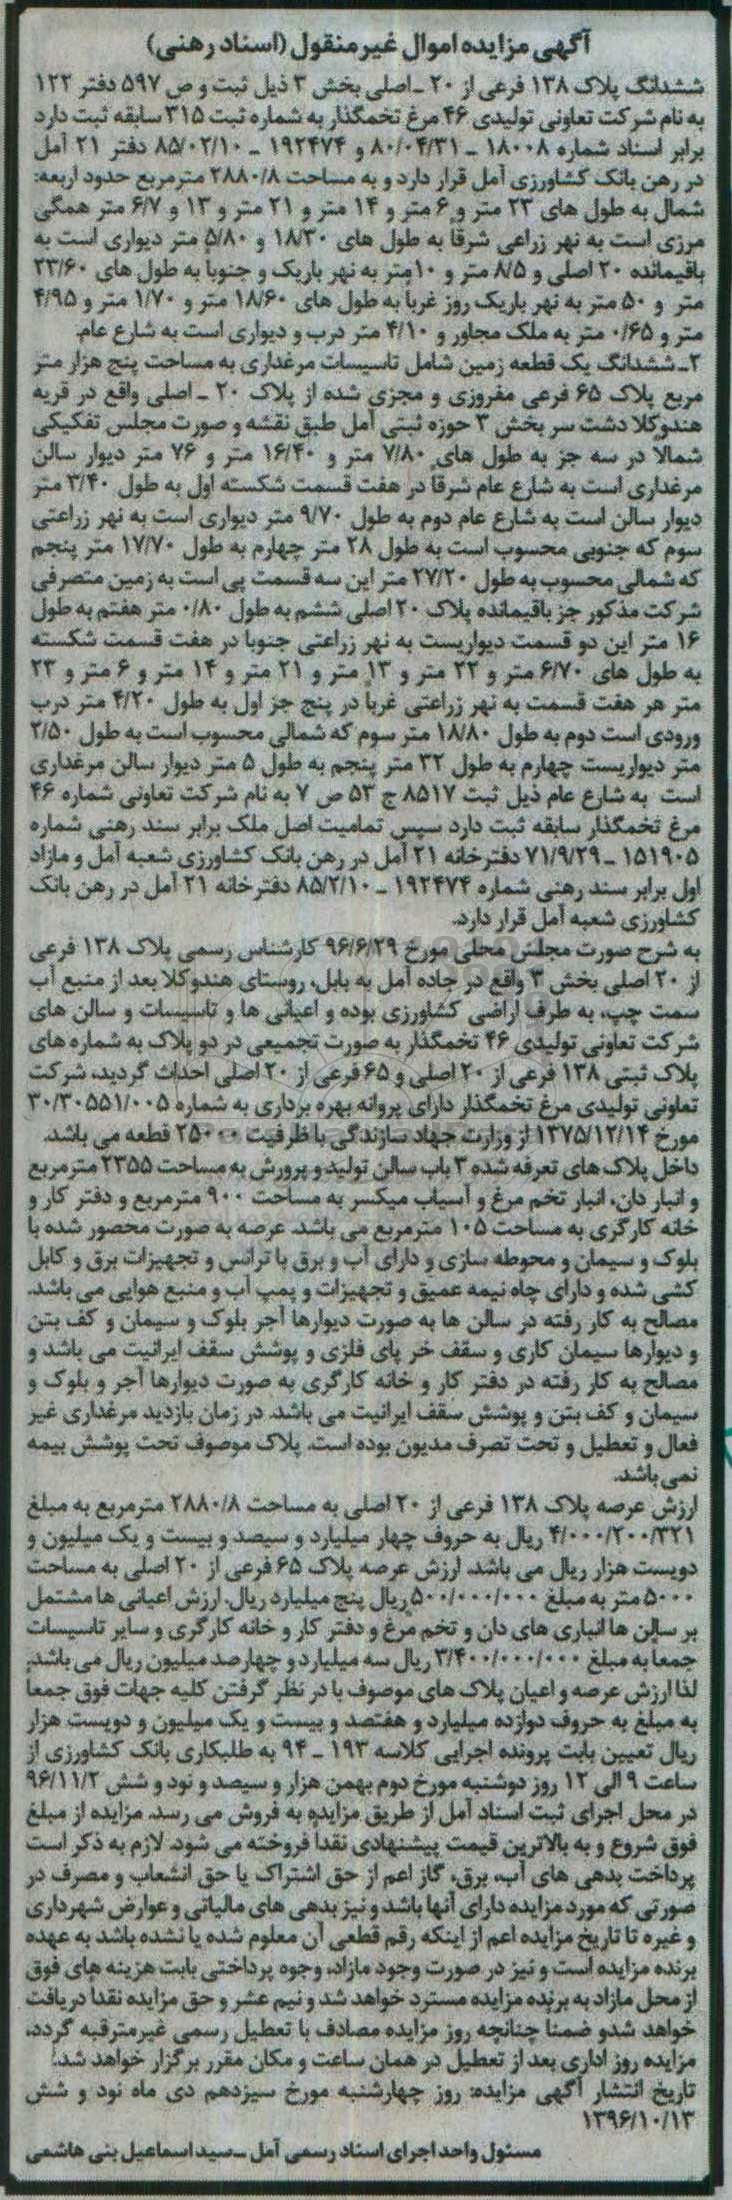 آگهی مزایده اموال غیرمنقول (اسناد رهنی)
ششدانگ پلاک ۱۳۸ فرعی از ۲۰ ـ اصلی بخش ۳ ذیل ثبت و ص ۵۹۷ دفتر ۱۲۲
به نام شرکت تعاونی تولیدی ۴۶ مرغ تخمگذار به شماره ثبت ۳۱۵ سابقه ثبت دارد
برابر اسناد شماره ۱۸۰۰۸ ـ ۸۰/۰۴/۳۱ و ۱۹۲۴۷۴ ـ ۸۵/۰۲/۱۰ دفتر ۲۱ آمل
در رهن بانک کشاورزی آمل قرار دارد و به مساحت ۲۸۸۰/۸ مترمربع حدود اربعه:
شمال به طول های ۲۳ متر و ۶ متر و ۱۴ متر و ۲۱ متر و ۱۳ و ۶/۷ متر همگی
مرزی است به نهر زراعی شرقا به طول های ۱۸/۳۰ و ۵/۸۰ متر دیواری است به
باقیمانده ۲۰ اصلی و ۸/۵ متر و ۱۰متر به نهر باریک و جنوباً به طول های ۲۳/۶۰
متر و ۵۰ متر به نهر باریک روز غرباً به طول های ۱۸/۶۰ متر و ۱/۷۰ متر و ۴/۹۵
متر و ۰/۶۵ متر به ملک مجاور و ۴/۱۰ متر درب و دیواری است به شارع عام.
۲ـ ششدانگ یک قطعه زمین شامل تاسیسات مرغداری به مساحت پنج هزار متر
مربع پلاک ۶۵ فرعی مفروزی و مجزی شده از پلاک ۲۰ ـ اصلی واقع در قریه
هندوکلا دشت سر بخش ۳ حوزه ثبتی آمل طبق نقشه و صورت مجلس تفکیکی
شمالاً در سه جز به طول های ۷/۸۰ متر و ۱۶/۴۰ متر و ۷۶ متر دیوار سالن
مرغداری است به شارع عام شرقا در هفت قسمت شکسته اول به طول ۳/۴۰ متر
دیوار سالن است به شارع عام دوم به طول ۹/۷۰ متر دیواری است به نهر زراعتی
سوم که جنوبی محسوب است به طول ۲۸ متر چهارم به طول ۱۷/۷۰ متر پنجم
که شمالی محسوب به طول ۲۷/۲۰ متر این سه قسمت پی است به زمین متصرفی
شرکت مذکور جز باقیمانده پلاک ۲۰ اصلی ششم به طول ۰/۸۰ متر هفتم به طول
۱۶ متر این دو قسمت دیواریست به نهر زراعتی جنوبا در هفت قسمت شکسته
به طول های ۶/۷۰ متر و ۲۲ متر و ۱۳ متر و ۲۱ متر و ۱۴ متر و ۶ متر و ۲۳
متر هر هفت قسمت به نهر زراعتی غرباً در پنج جز اول به طول ۴/۲۰ متر درب
ورودی است دوم به طول ۱۸/۸۰ متر سوم که شمالی محسوب است به طول ۲/۵۰
متر دیواریست چهارم به طول ۳۲ متر پنجم به طول ۵ متر دیوار سالن مرغداری
است به شارع عام ذیل ثبت ۸۵۱۷ ج ۵۳ ص ۷ به نام شرکت تعاونی شماره ۴۶
مرغ تخمگذار سابقه ثبت دارد سپس تمامیت اصل ملک برابر سند رهنی شماره
۱۵۱۹۰۵ ـ ۷۱/۹/۲۹ دفترخانه ۲۱ آمل در رهن بانک کشاورزی شعبه آمل و مازاد
اول برابر سند رهنی شماره ۱۹۲۴۷۴ ـ ۸۵/۲/۱۰ دفترخانه ۲۱ آمل در رهن بانک
کشاورزی شعبه آمل قرار دارد.
به شرح صورت مجلس محلی مورخ ۹۶/۶/۲۹ کارشناس رسمی پلاک ۱۳۸ فرعی
از ۲۰ اصلی بخش ۳ واقع در جاده آمل به بابل، روستای هندوکلا بعد از منبع آب
سمت چپ، به طرف اراضی کشاورزی بوده و اعیانی ها و تاسیسات و سالن های
شرکت تعاونی تولیدی ۴۶ تخمگذار به صورت تجمیعی در دو پلاک به شماره های
پلاک ثبتی ۱۳۸ فرعی از ۲۰ اصلی و ۶۵ فرعی از ۲۰ اصلی احداث گردید، شرکت
تعاونی تولیدی مرغ تخمگذار دارای پروانه بهره برداری به شماره ۳۰/۳۰۵۵۱/۰۰۵
مورخ ۱۳۷۵/۱۲/۱۴ از وزارت جهاد سازندگی با ظرفیت ۲۵۰۰۰ قطعه می باشد.
داخل پلاک های تعرفه شده ۳ باب سالن تولید و پرورش به مساحت ۲۳۵۵ مترمربع
و انبار دان، انبار تخم مرغ و آسیاب میکسر به مساحت ۹۰۰ مترمربع و دفتر کار و
خانه کارگری به مساحت ۱۰۵ مترمربع می باشد. عرصه به صورت محصور شده با
بلوک و سیمان و محوطه سازی و دارای آب و برق با ترانس و تجهیزات برق و کابل
کشی شده و دارای چاه نیمه عمیق و تجهیزات و پمپ آب و منبع هوایی می باشد.
مصالح به کار رفته در سالن ها به صورت دیوارها آجر بلوک و سیمان و کف بتن
و دیوارها سیمان کاری و سقف خر پای فلزی و پوشش سقف ایرانیت می باشد و
مصالح به کار رفته در دفتر کار و خانه کارگری به صورت دیوارها آجر و بلوک و
سیمان و کف بتن و پوشش سقف ایرانیت می باشد. در زمان بازدید مرغداری غیر
فعال و تعطیل و تحت تصرف مدیون بوده است. پلاک موصوف تحت پوشش بیمه
نمی باشد.
ارزش عرصه پلاک ۱۳۸ فرعی از ۲۰ اصلی به مساحت ۲۸۸۰/۸ مترمربع به مبلغ
۴/۰۰۰/۲۰۰/۳۲۱ ریال به حروف چهار میلیارد و سیصد و بیست و یک میلیون و
دویست هزار ریال می باشد. ارزش عرصه پلاک ۶۵ فرعی از ۲۰ اصلی به مساحت
۵۰۰۰ متر به مبلغ ۵۰۰/۰۰۰/۰۰۰ ریال پنج میلیارد ریال. ارزش اعیانی ها مشتمل
بر سالن ها انباری های دان و تخم مرغ و دفتر کار و خانه کارگری و سایر تاسیسات
جمعاً به مبلغ ۳/۴۰۰/۰۰۰/۰۰۰ ریال سه میلیارد و چهارصد میلیون ریال می باشد.
لذا ارزش عرصه و اعیان پلاک های موصوف با در نظر گرفتن کلیه جهات فوق جمعا
به مبلغ به حروف دوازده میلیارد و هفتصد و بیست و یک میلیون و دویست هزار
ریال تعیین بابت پرونده اجرایی کلاسه ۱۹۳ ـ ۹۴ به طلبکاری بانک کشاورزی از
ساعت ۹ الی ۱۲ روز دوشنبه مورخ دوم بهمن هزار و سیصد و نود و شش ۹۶/۱۱/۲
در محل اجرای ثبت اسناد آمل از طریق مزایده به فروش می رسد. مزایده از مبلغ
فوق شروع و به بالاترین قیمت پیشنهادی نقداً فروخته می شود. لازم به ذکر است
پرداخت بدهی های آب، برق، گاز اعم از حق اشتراک یا حق انشعاب و مصرف در
صورتی که مورد مزایده دارای آنها باشد و نیز بدهی های مالیاتی و عوارض شهرداری
و غیره تا تاریخ مزایده اعم از اینکه رقم قطعی آن معلوم شده یا نشده باشد به عهده
برنده مزایده است و نیز در صورت وجود مازاد، وجوه پرداختی بابت هزینه های فوق
از محل مازاد به برنده مزایده مسترد خواهد شد و نیم عشر و حق مزایده نقداً دریافت
خواهد شدو ضمنا چنانچه روز مزایده مصادف با تعطیل رسمی غیرمترقبه گردد،
مزایده روز اداری بعد از تعطیل در همان ساعت و مکان مقرر برگزار خواهد شد.
تاریخ انتشار آگهی مزایده: روز چهارشنبه مورخ سیزدهم دی ماه نود و شش
۱۳۹۶/۱۰/۱۳
مسئول واحد اجرای اسناد رسمی آمل ـ سید اسماعیل بنی هاشمی